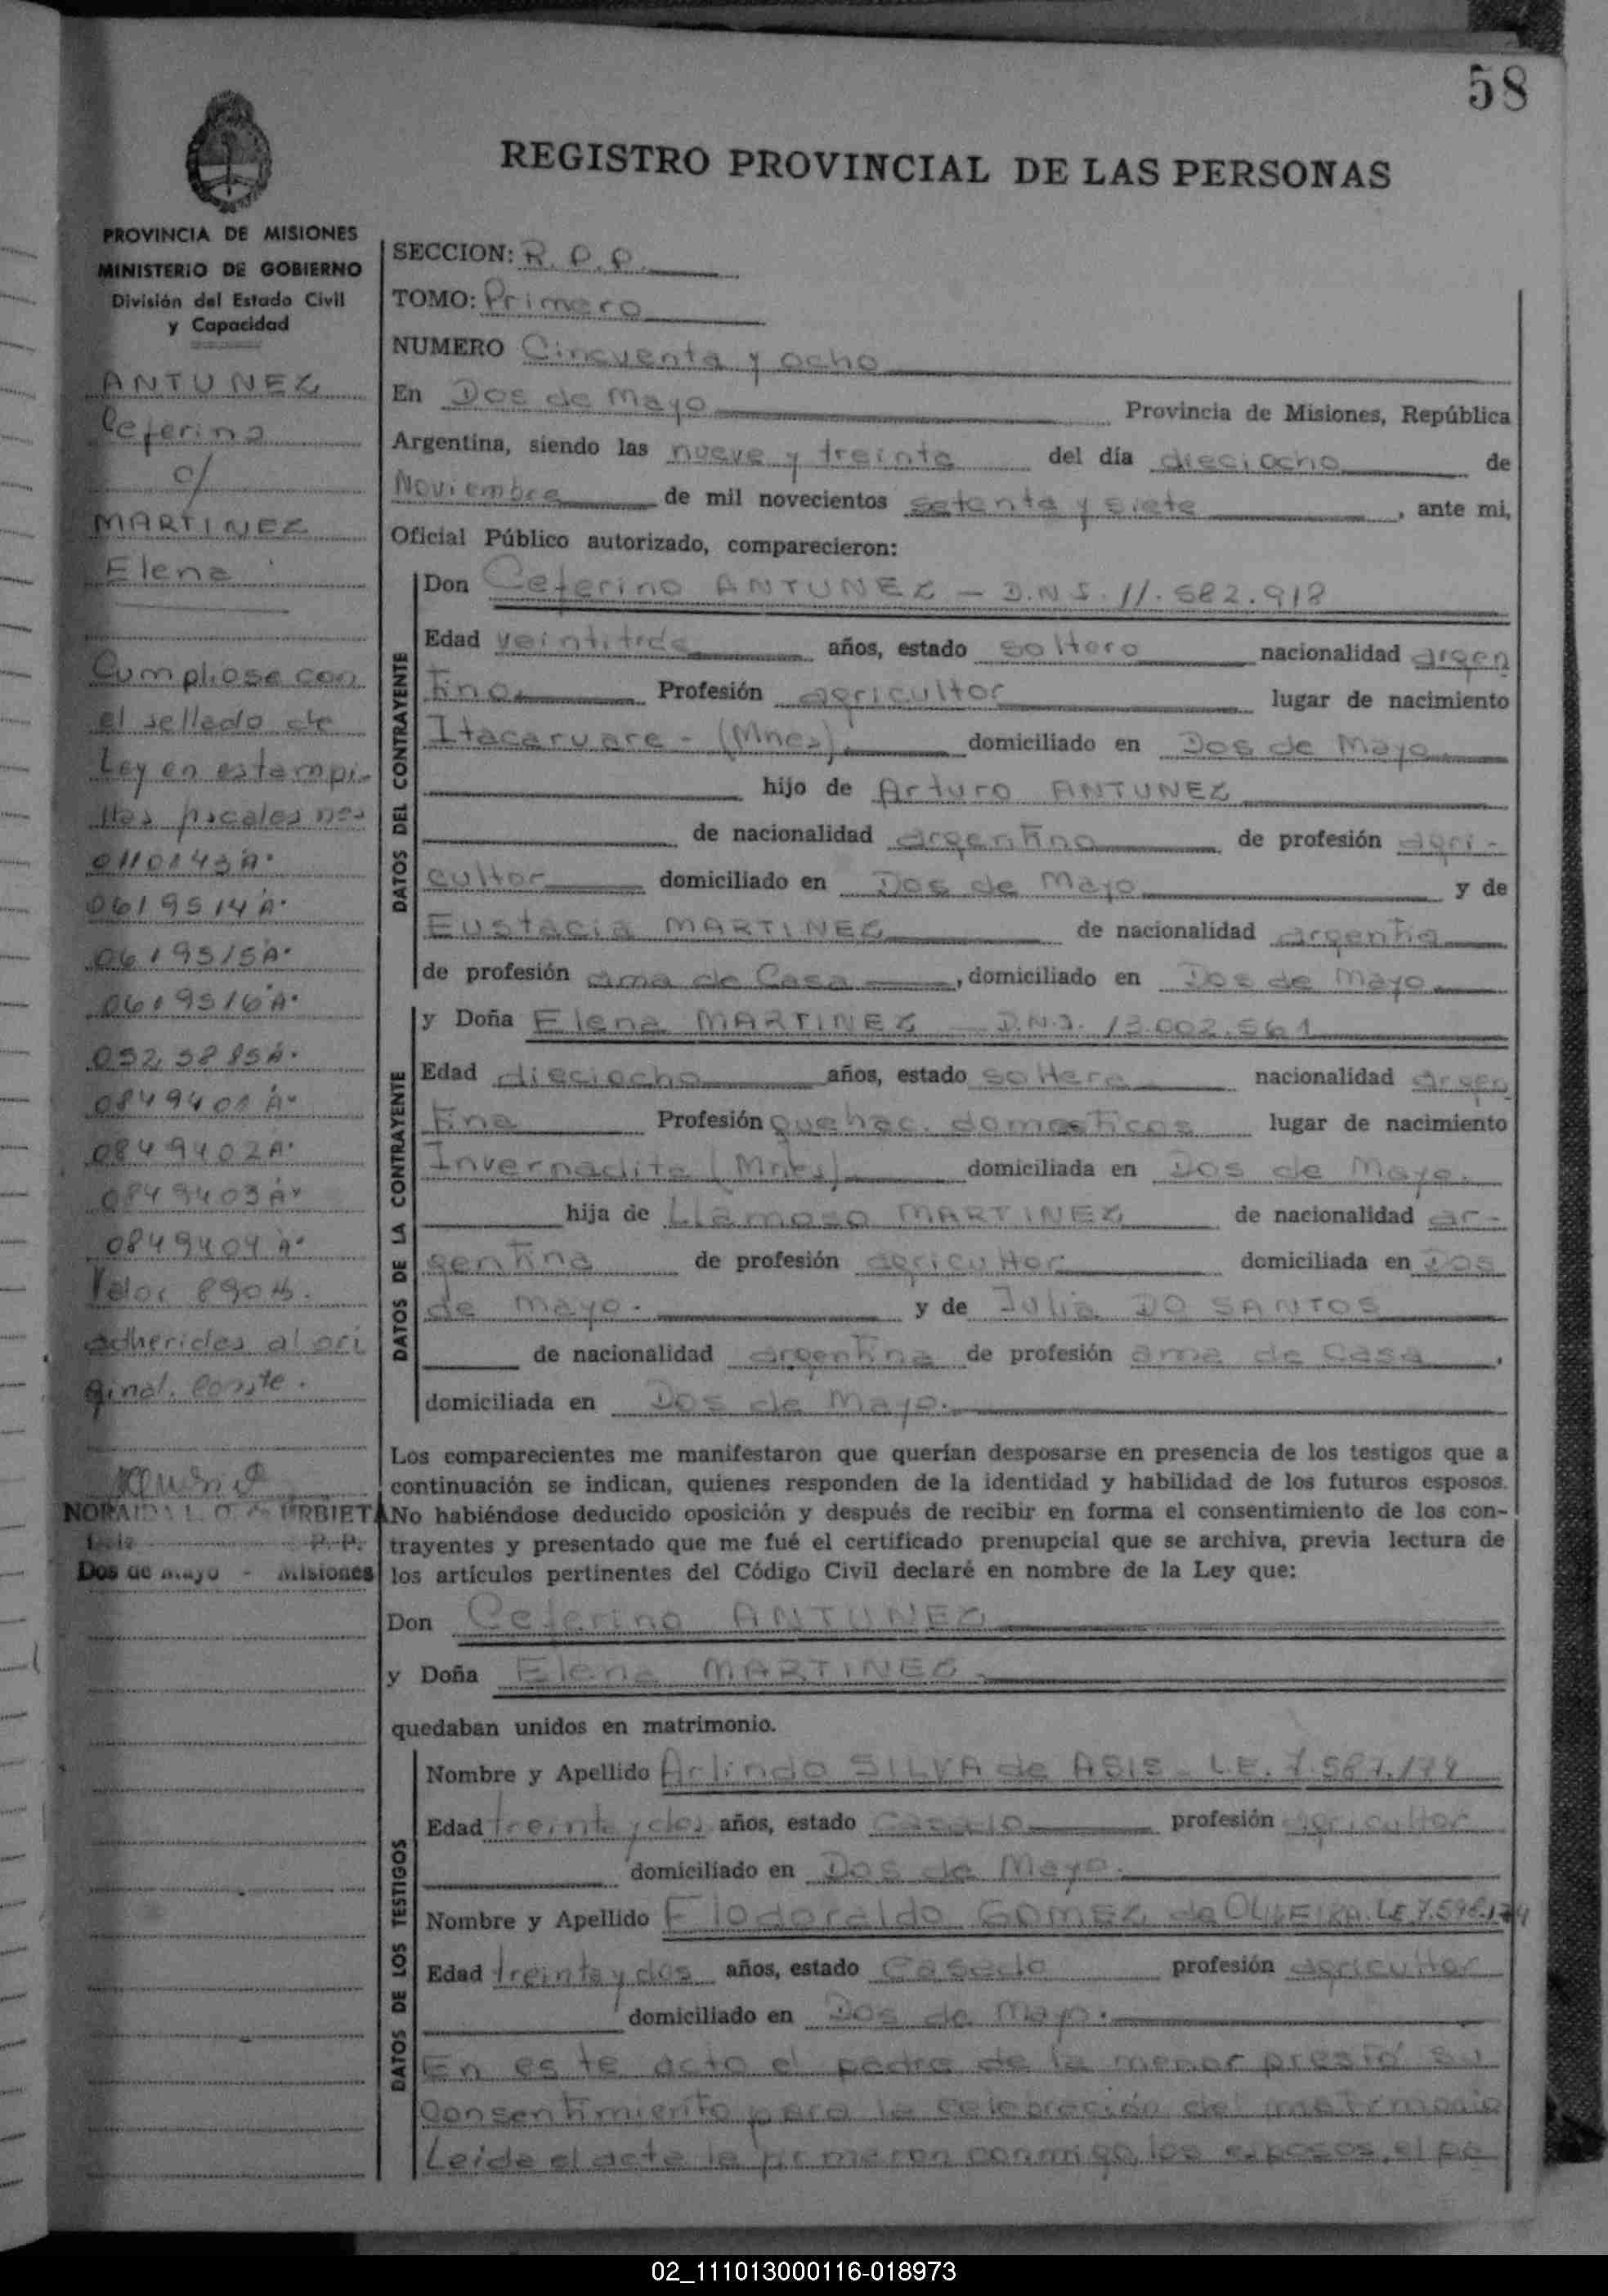 58
REGISTRO PROVINCIAL DE LAS PERSONAS
PROVINCIA DE MISIONES
MINISTERIO DE GOBIERNO
División del Estado Civil
y Capacidad
ANTUNEZ
Ceferino
c/
MARTINEZ
Elena
Cumpliose con
el sellado de
Ley en estampi-
llas fiscales nos
0110143A.
0619514A.
0619515A.
0619516A.
0849402A.
0849403A.
0849404A.
Valor 890
adheridas al ori
ginal. Conste.
NORA URBIETA
P. P.
Dos de mayo - Misiones
SECCION: R. P. P.
TOMO: Primero
NUMERO Cincuenta y ocho
En Dos de Mayo Provincia de Misiones, República
Argentina, siendo las nueve y treinta del día dieciocho de
Noviembre de mil novecientos setenta y siete, ante mi,
Oficial Público autorizado, comparecieron:
DATOS DEL CONTRAYENTE
Don Ceferino ANTUNEZ - D.N.I. 11.582.918
Edad veintitrés años, estado soltero nacionalidad argen
tino Profesión agricultor lugar de nacimiento
Itacaruare - (Mnes). domiciliado en Dos de Mayo
hijo de Arturo ANTUNEZ
de nacionalidad argentino de profesión agri-
cultor domiciliado en Dos de Mayo y de
Eustacia MARTINEZ de nacionalidad argentina
de profesión ama de Casa, domiciliado en Dos de Mayo
DATOS DE LA CONTRAYENTE
y Doña Elena MARTINEZ - D.N.I. 13.002.561
Edad dieciocho años, estado soltera nacionalidad argen
tina Profesión quehac. domesticos lugar de nacimiento
Invernadita (Mnes) domiciliada en Dos de Mayo.
hija de Llamoso MARTINEZ de nacionalidad ar-
gentina de profesión agricultor domiciliada en Dos
de Mayo. y de Julia DO SANTOS
de nacionalidad argentina de profesión ama de casa,
domiciliada en Dos de Mayo.
Los comparecientes me manifestaron que querían desposarse en presencia de los testigos que a
continuación se indican, quienes responden de la identidad y habilidad de los futuros esposos.
No habiéndose deducido oposición y después de recibir en forma el consentimiento de los con-
trayentes y presentado que me fué el certificado prenupcial que se archiva, previa lectura de
los artículos pertinentes del Código Civil declaré en nombre de la Ley que:
Don Ceferino ANTUNEZ
y Doña Elena MARTINEZ
quedaban unidos en matrimonio.
DATOS DE LOS TESTIGOS
Nombre y Apellido Arlindo SILVA de ASIS - L.E. 7.587.179
Edad treinta y dos años, estado Casado profesión agricultor
domiciliado en Dos de Mayo.
Nombre y Apellido Flodoraldo GOMEZ de OLIVEIRA. L.E.
Edad treinta y dos años, estado Casado profesión agricultor
domiciliado en Dos de Mayo.
En este acto el padre de la menor prestó su
consentimiento para la celebración del matrimonio
Leida el acta la firmaron conmigo, los esposos, el pa
02_111013000116-018973